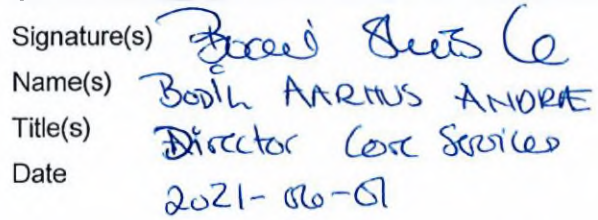 Signature(s)
Name(s) BODIL AARHUS ANDRÆ
Title(s) Director Core Services
Date 2021-06-01